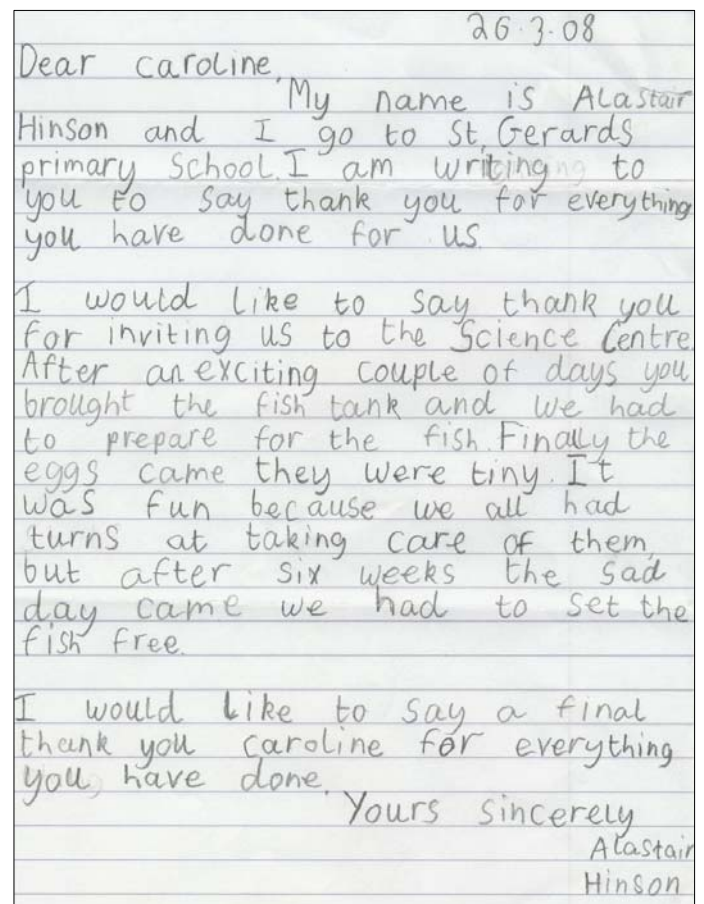 26.3.08
Dear caroline,
My name is Alastair
Hinson and I go to St. Gerards
primary School. I am writing to
you to say thank you for everything
you have done for us.
I would like to say thank you
for inviting us to the Science Centre.
After an exciting couple of days you
brought the fish tank and we had
to prepare for the fish. Finally the
eggs came they were tiny. It
was fun because we all had
turns at taking care of them,
but after six weeks the sad
day came we had to set the
fish free.
I would like to say a final
thank you caroline for everything
you have done.
Yours sincerely
Alastair
Hinson